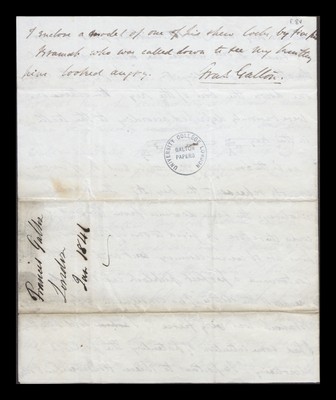 I enclose a model of one of his shew locks, by
Bramah who was called down to see my
looked angry. Frank Galton.
UNIVERSITY COLLEGE LONDON
GALTON
PAPERS
Francis Galton
London
Jan 1841